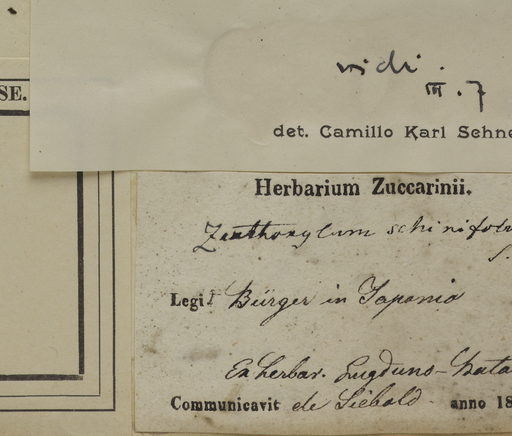 SE.
vidi.
III. 7
det. Camillo Karl Schne
Herbarium Zuccarinii.
Zanthoxylum schinifoliu
S.
Legit Bürger in Japonia
Ex herbar. Lugduno-Bata
Communicavit de Siebold anno 18